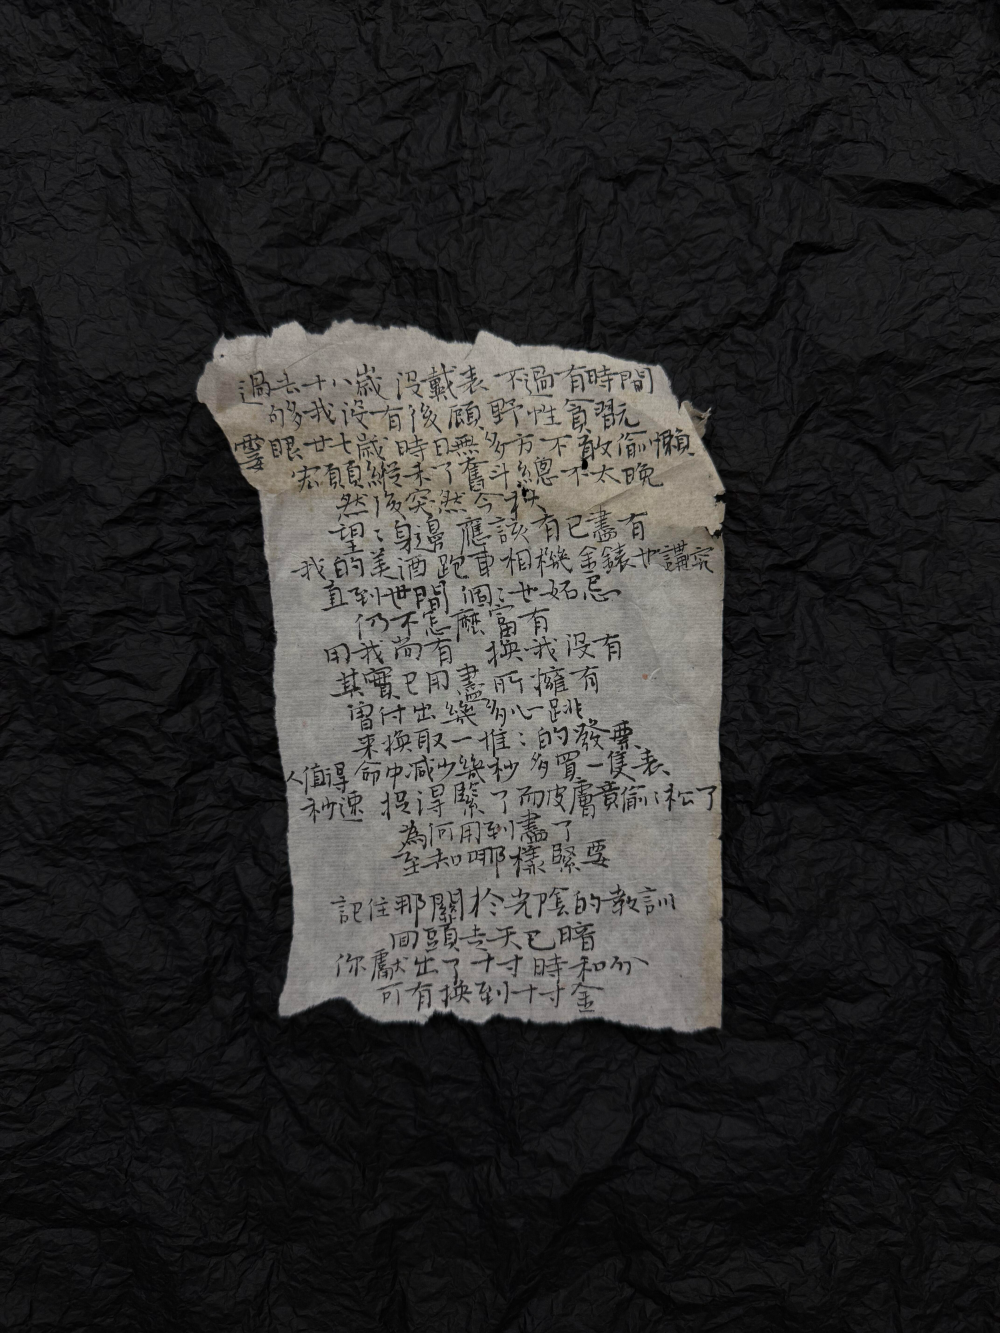 過去十八歲 沒戴表 不過有時間
够我沒有後顧 野性貪習玩
霎眼廿七歲時日無多方不敢偷懶
宏願縱未了奮斗總不太晚
然後突然今秋
望：身邊 應該有已盡有
我的美酒跑車相機金錶也講究
直到世間個：也妬忌
仍不怎麽富有
用我尚有 換我沒有
其實已用盡所擁有
曾付出幾多心跳
來換取一堆：的發票
人值得命中減少幾秒多買一隻表
秒速 捉得緊了而皮膚竟偷：松了
為何用到盡了
至知哪樣緊要
記住那關於光陰的教訓
回頭走天已暗
你獻出了十寸時和分
可有換到十寸金